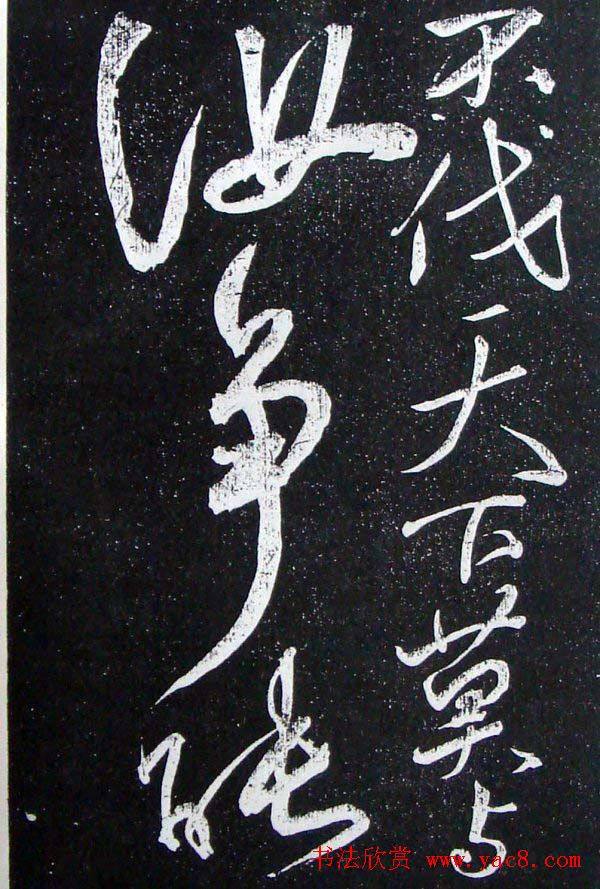 不伐天下莫与
汝争能
书法欣赏 www.yac8.com